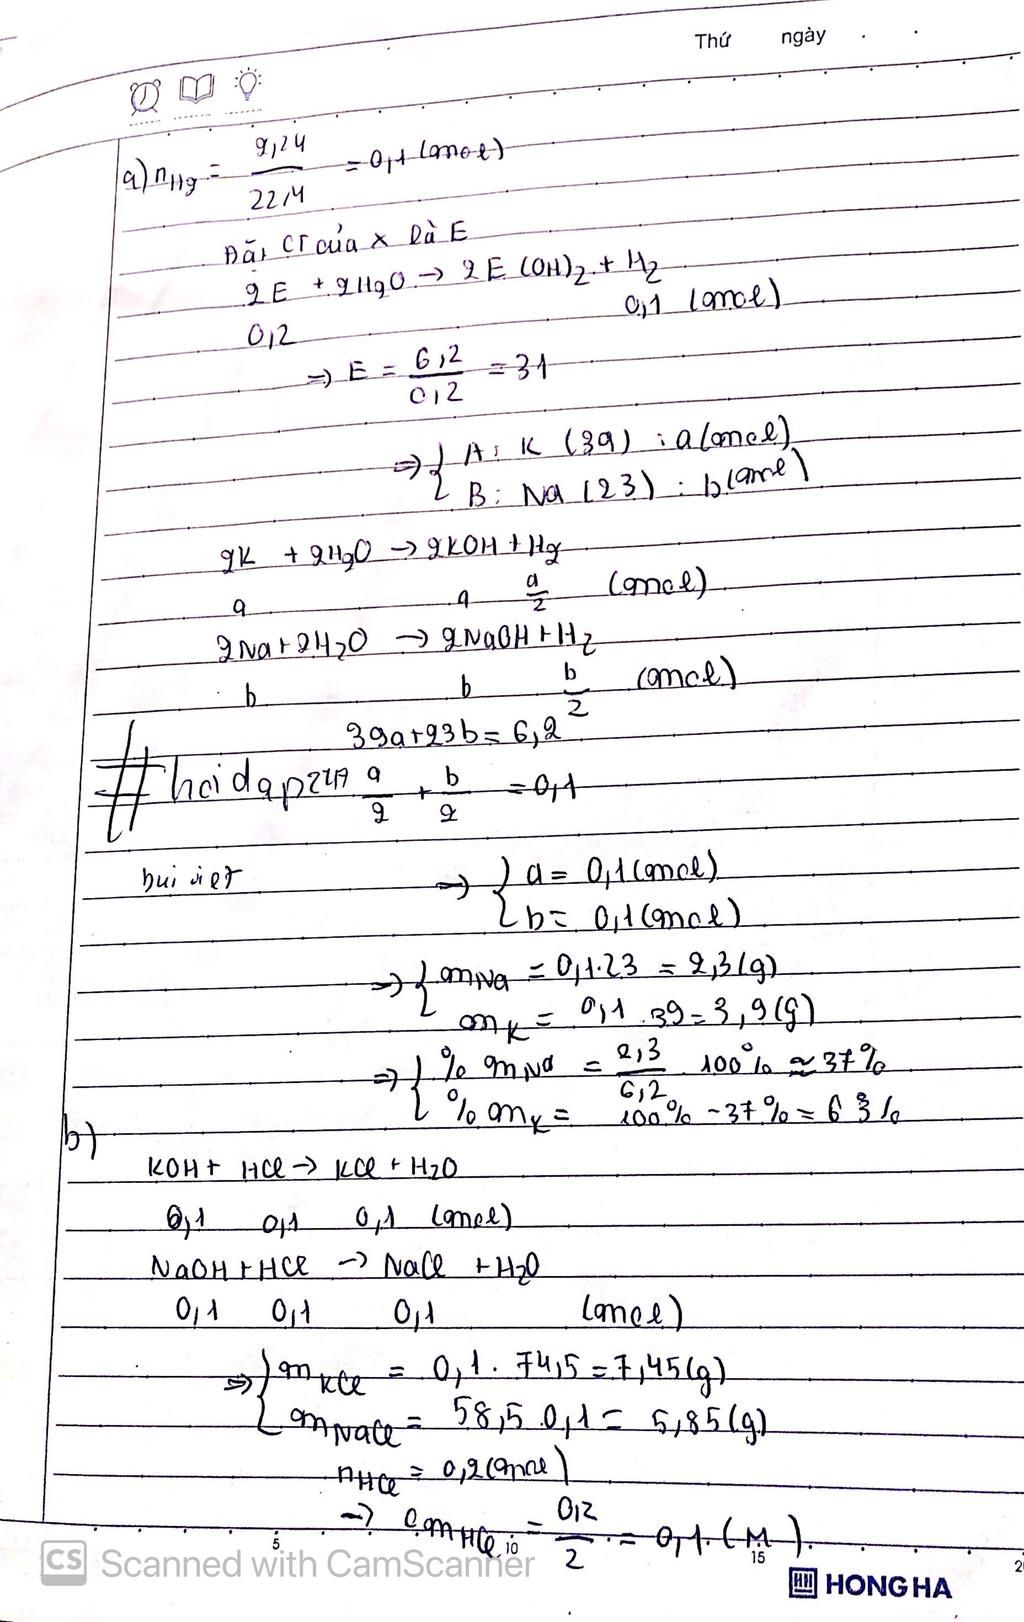 Thứ ngày . .
a) nH2 = 2,24/22,4 = 0,1 (mol)
Đặt CT của X là E
2E + 2H2O → 2E(OH)2 + H2
0,2 0,1 (mol)
⇒ E = 6,2/0,2 = 31
⇒ { A: K (39) : a (mol)
B: Na (23) : b (mol)
2K + 2H2O → 2KOH + H2
a a a/2 (mol)
2Na + 2H2O → 2NaOH + H2
b b b/2 (mol)
39a + 23b = 6,2
#hoidap247 a/2 + b/2 = 0,1
bui viet ⇒ { a = 0,1 (mol)
b = 0,1 (mol)
⇒ { mNa = 0,1.23 = 2,3 (g)
mK = 0,1 . 39 = 3,9 (g)
⇒ { % mNa = 2,3/6,2 . 100% ≈ 37%
% mK = 100% - 37% = 63%
b)
KOH + HCl → KCl + H2O
0,1 0,1 0,1 (mol)
NaOH + HCl → NaCl + H2O
0,1 0,1 0,1 (mol)
⇒ { mKCl = 0,1 . 74,5 = 7,45 (g)
mNaCl = 58,5 . 0,1 = 5,85 (g)
nHCl = 0,2 (mol)
→ CmHCl = 0,2/2 = 0,1 (M).
5 10 15 2
CS Scanned with CamScanner
HH HONG HA